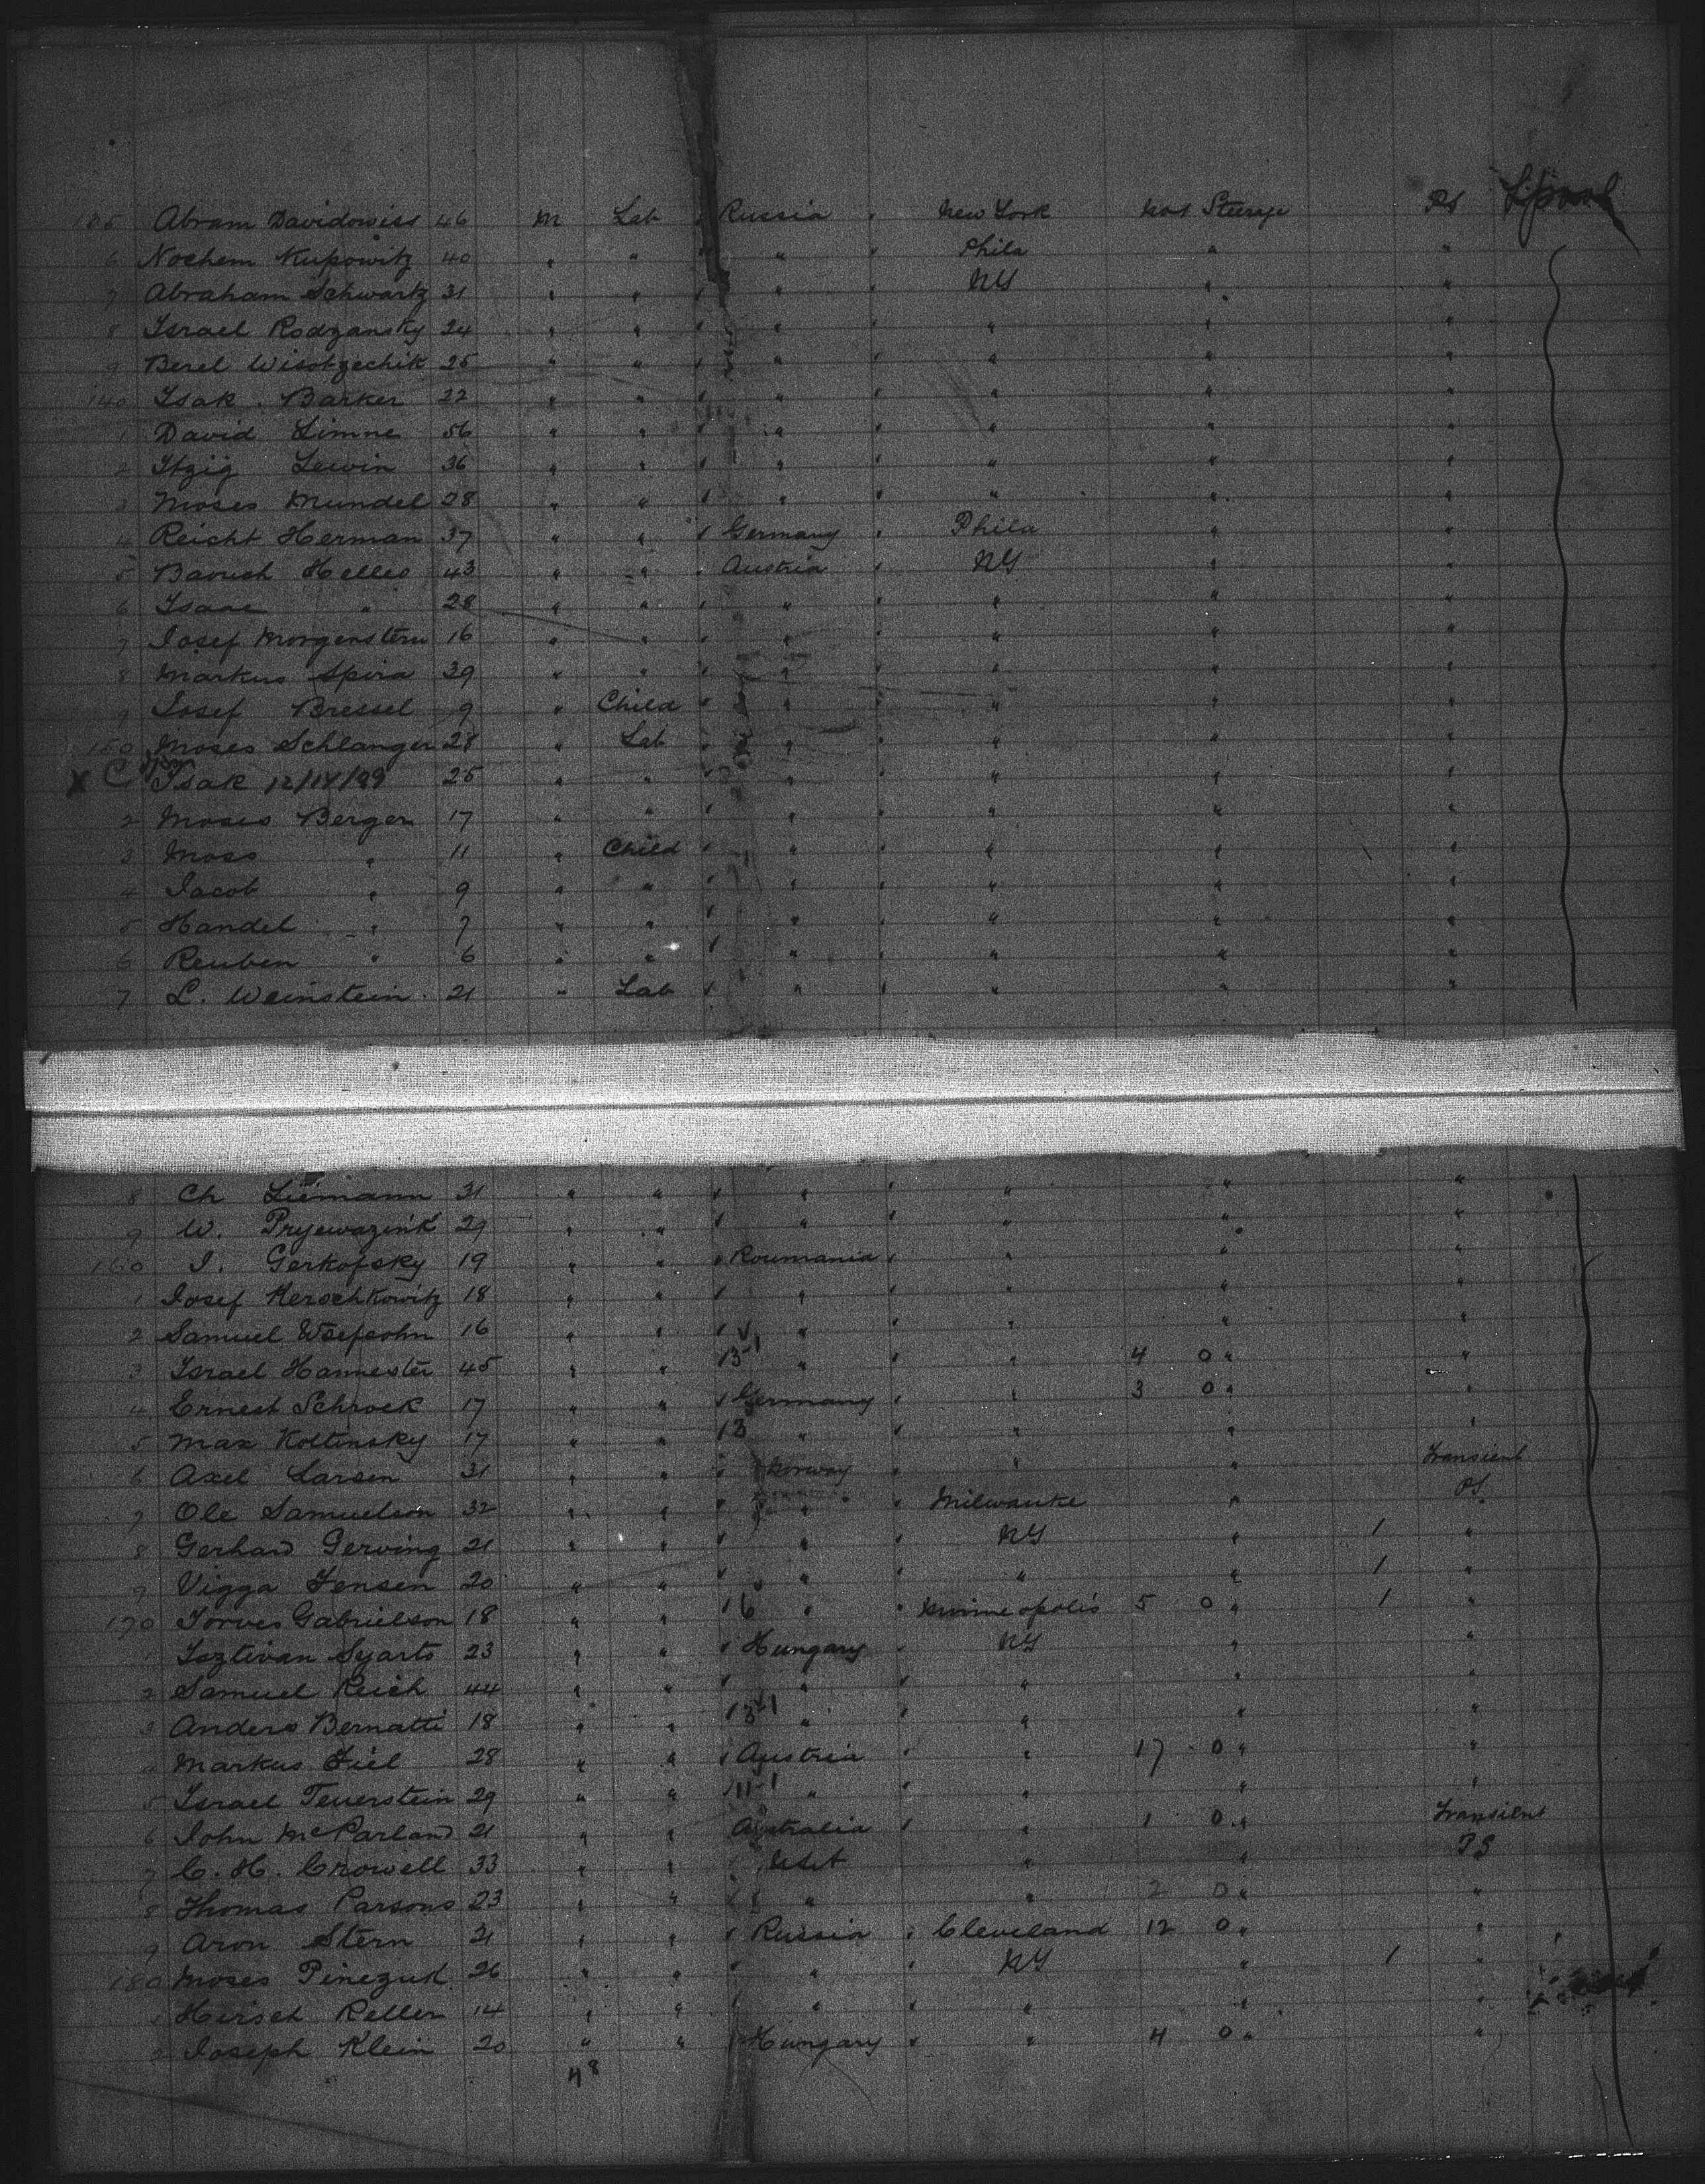 135 Abram Davidowiss 46 M Lab Russia New York Steerage PS L'pool
6 Nochem Kupowitz 40 " " " Phila " "
7 Abraham Schwartz 31 " " " NY " "
8 Israel Rodzansky 24 " " " " " "
9 Berel Wisotzechik 25 " " " " " "
140 Isak Barker 22 " " " " " "
1 David Limne 56 " " " " " "
2 Itzig Lewin 36 " " " " " "
3 Moses Mundel 28 " " " " " "
4 Reicht Herman 37 " " Germany Phila " "
5 Baruch Helles 43 " " Austria NY " "
6 Isaac " 28 " " " " " "
7 Josef Morgenstern 16 " " " " " "
8 Markus Spira 39 " " " " " "
9 Josef Bressel 9 " Child " " " "
150 Moses Schlanger 28 " Lab " " " "
X C Isak 12/14/99 25 " " " " " "
2 Moses Berger 17 " " " " " "
3 Moss " 11 " Child " " " "
4 Jacob " 9 " " " " " "
5 Handel " 7 " " " " " "
6 Reuben " 6 " " " " " "
7 L. Weinstein 21 " Lab " " " "
8 Ch Liemann 31 " " " " " "
9 W. Pryewazink 29 " " " " " "
160 I. Gerkofsky 19 " " Roumania " " "
1 Josef Herschkowitz 18 " " " " " "
2 Samuel 16 " " " " " "
3 Israel Hannester 45 " " " " 4 0 " "
4 Ernest Schrock 17 " " Germany " 3 0 " "
5 Max Koltinsky 17 " " 13 " " " "
6 Axel Larsen 31 " " Norway " " Transient
7 Ole Samuelson 32 " " " Milwauke " PS
8 Gerhard Gerving 21 " " " NY " 1 "
9 Vigga Jensen 20 " " " " " 1 "
170 Torves Gabrielson 18 " " 16 " Minneopolis 5 0 " 1 "
1 Isztivan Syarto 23 " " Hungary NY " "
2 Samuel Reich 44 " " " " " "
3 Anders Bernatti 18 " " " " " "
4 Markus Fiel 28 " " Austria " 17 0 " "
5 Israel Teuerstein 29 " " 11-1 " " " "
6 John McParland 21 " " Australia " 1 0 " Transient
7 C. H. Crowell 33 " " " " PS
8 Thomas Parsons 23 " " " " 2 0 " "
9 Aron Stern 21 " " Russia Cleveland 12 0 " "
180 Moses Pinezuk 26 " " " NY " 1 "
1 Hirsch Keller 14 " " " " " "
2 Joseph Klein 20 " " Hungary " 4 0 " "
48